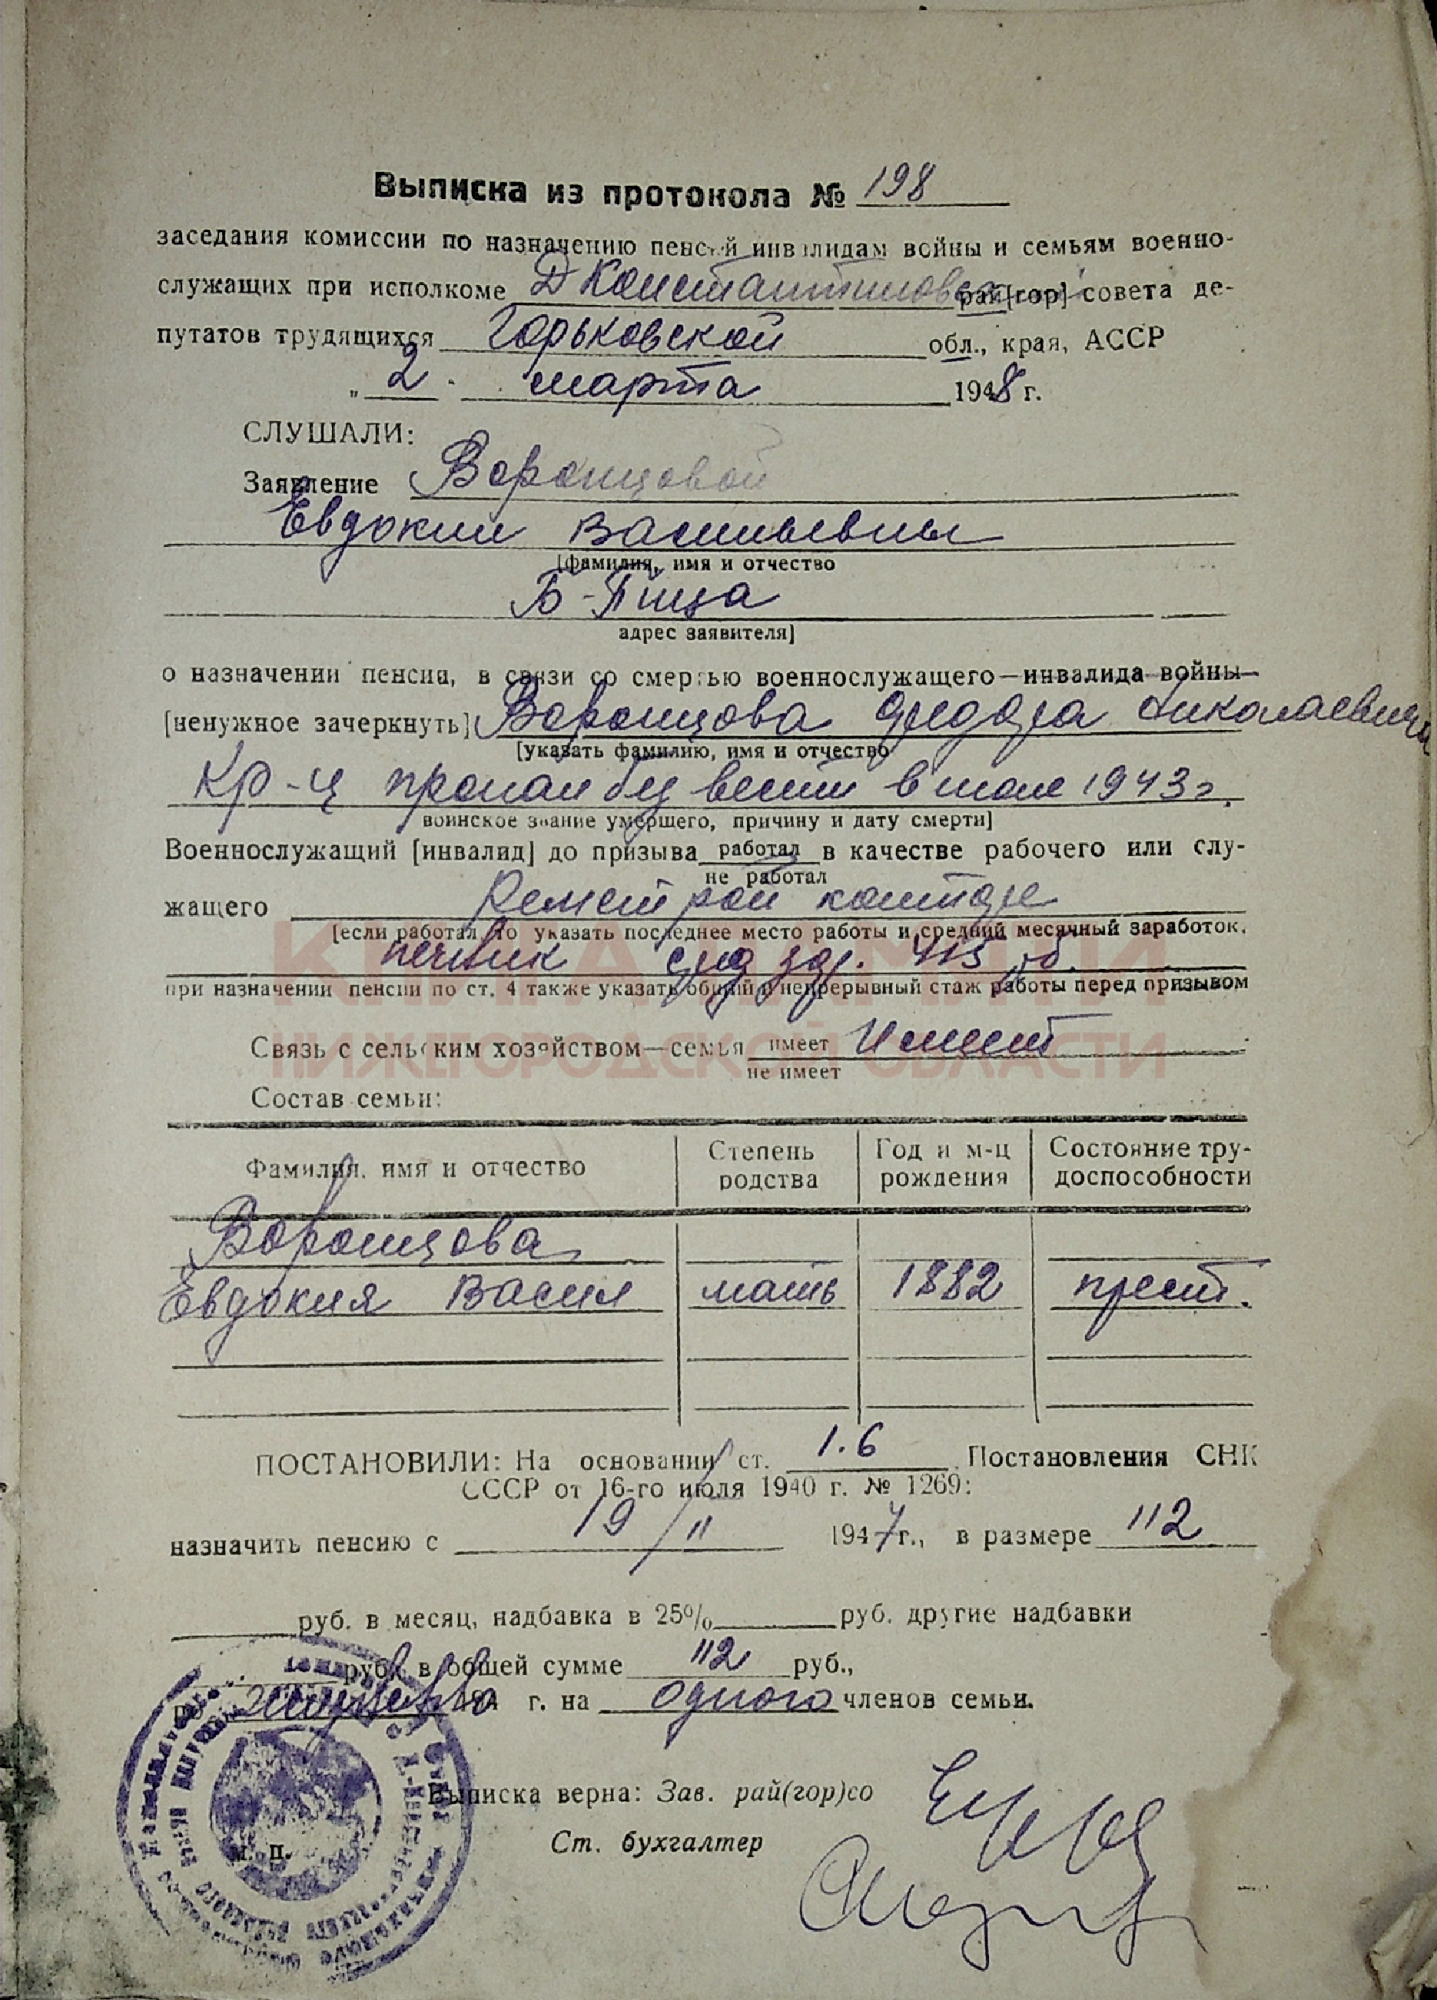 Выписка из протокола № 198
заседания комиссии по назначению пенсий инвалидам войны и семьям военно-
служащих при исполкоме Д Константиновск рай[гор] совета де-
путатов трудящихся Горьковской обл., края, АССР
„ 2 . марта 1948 г.
СЛУШАЛИ:
Заявление Воронцовой
Евдокии Васильевны
[фамилия, имя и отчество
Б-Пица
адрес заявителя]
о назначении пенсии, в связи со смертью военнослужащего—инвалида войны—
[ненужное зачеркнуть] Воронцова Федора Николаевича
[указать фамилию, имя и отчество
Кр-ц пропал без вести в мае 1943 г.
воинское звание умершего, причину и дату смерти]
Военнослужащий [инвалид] до призыва работал в качестве рабочего или слу-
не работал
жащего Ремстрой конторе
[если работал, то указать последнее место работы и средний месячный заработок.
печник сред зар. 415 рб.
при назначении пенсии по ст. 4 также указать общий и непрерывный стаж работы перед призывом
КНИГА ПАМЯТИ
НИЖЕГОРОДСКОЙ ОБЛАСТИ
Связь с сельским хозяйством—семья имеет Имеет
не имеет
Состав семьи:
Фамилия, имя и отчество Степень родства Год и м-ц рождения Состояние тру-доспособности
Воронцова
Евдокия Васил мать 1882 прест.
ПОСТАНОВИЛИ: На основании ст. 1.6 Постановления СНК
СССР от 16-го июля 1940 г. № 1269:
назначить пенсию с 19/II 1947 г., в размере 112
руб. в месяц, надбавка в 25% руб. другие надбавки
руб. в общей сумме 112 руб.,
по 194 г. на одного членов семьи.
Выписка верна: Зав. рай(гор)со
Ст. бухгалтер
м. п.